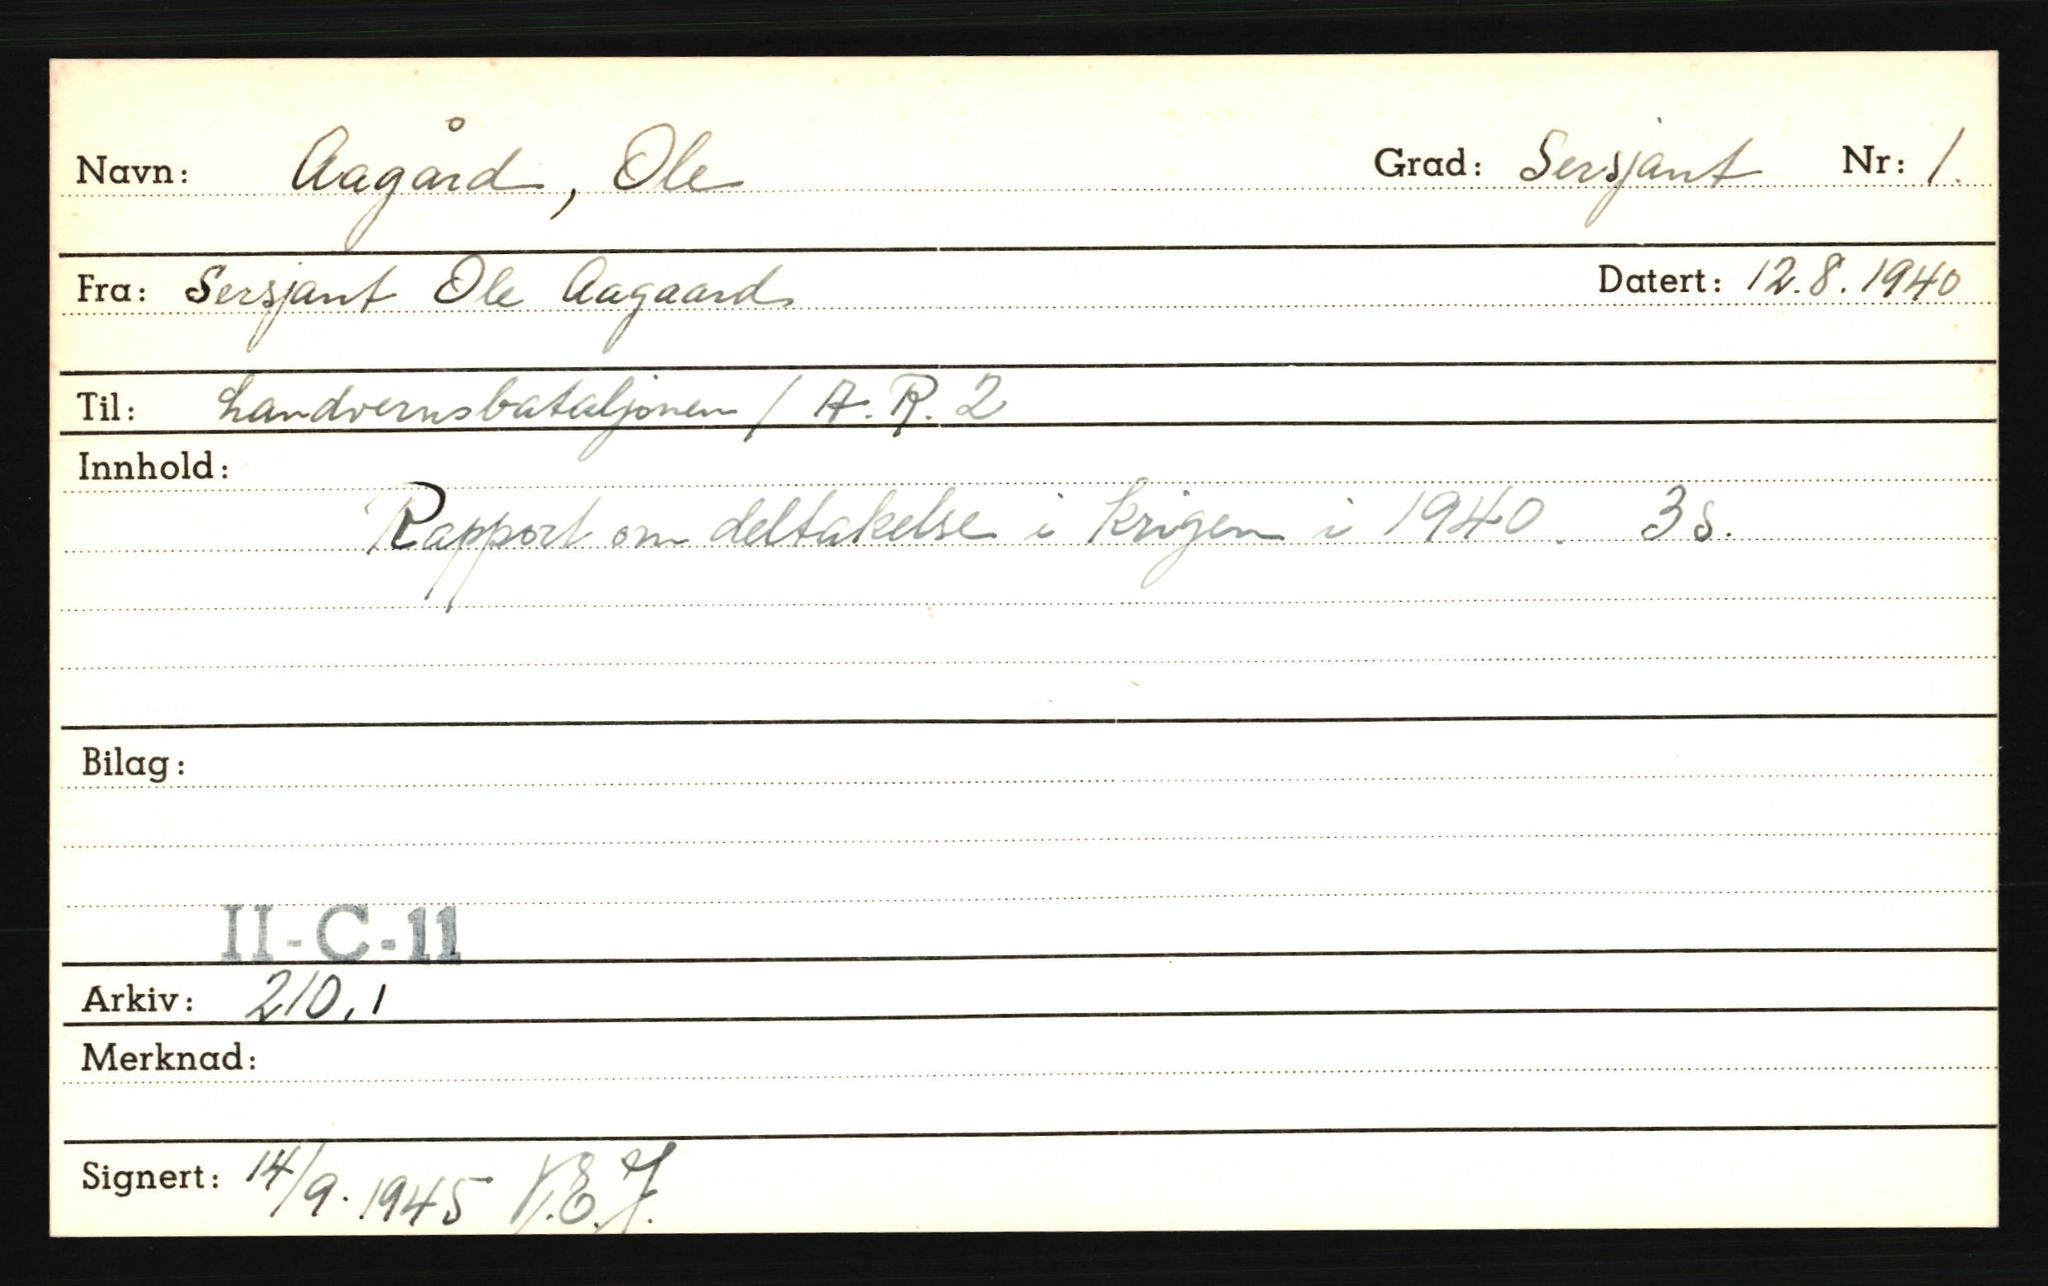 Navn: Aagård, Ole Grad: Sersjant Nr: 1.
Fra: Sersjant Ole Aagaard Datert: 12.8.1940
Til: Landvernsbataljonen / A.R.2
Innhold:
Rapport om deltakelse i krigen i 1940. 3 s.
Bilag:
II-C-11
Arkiv: 210.1
Merknad:
Signert: 14/9.1945 V.E.J.